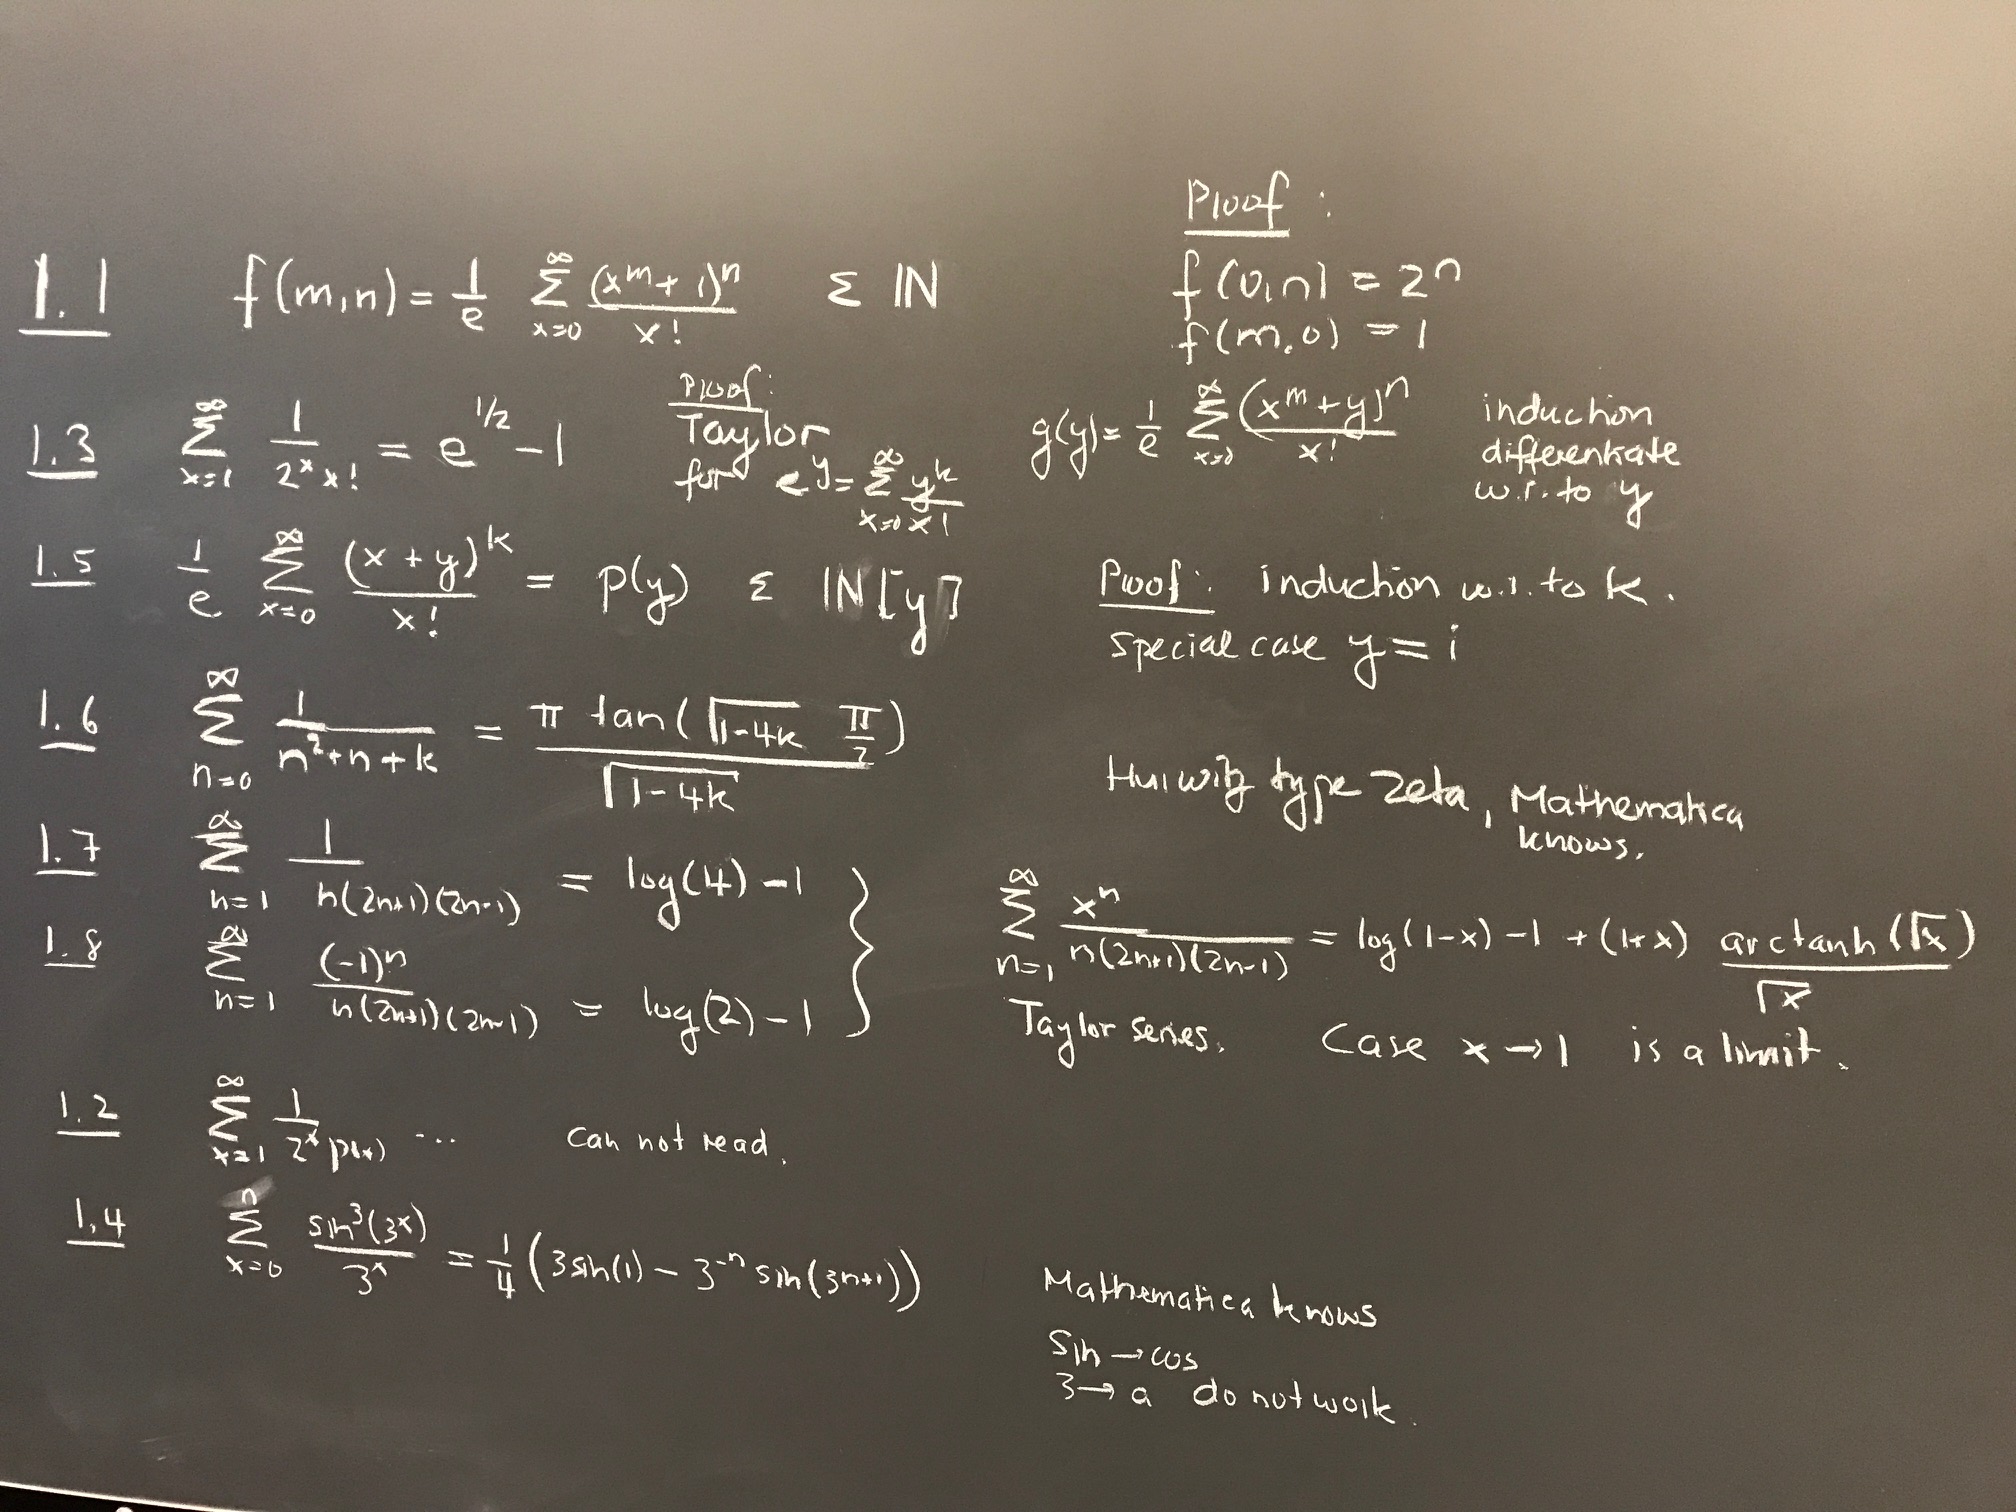 Proof :
1.1 f(m,n) = 1/e ∑_{x=0}^{∞} (x^m + 1)^n / x! ε IN
f(0,n) = 2^n
f(m,0) = 1
1.3 ∑_{x=1}^{∞} 1/(2^x x!) = e^{1/2} - 1
Proof:
Taylor
for e^y = ∑_{x=0}^{∞} y^k / x!
g(y) = 1/e ∑_{x=0}^{∞} (x^m + y)^n / x!
induction
differentiate
w.r. to y
1.5 1/e ∑_{x=0}^{∞} (x + y)^k / x! = p(y) ε IN[y]
Proof: induction w.r. to k.
special case y = i
1.6 ∑_{n=0}^{∞} 1/(n^2+n+k) = π tan(√(1-4k) π/2) / √(1-4k)
Hurwitz type zeta, Mathematica
knows.
1.7 ∑_{n=1}^{∞} 1/(n(2n+1)(2n-1)) = log(4) - 1
1.8 ∑_{n=1}^{∞} (-1)^n/(n(2n+1)(2n-1)) = log(2) - 1
∑_{n=1}^{∞} x^n/(n(2n+1)(2n-1)) = log(1-x) - 1 + (1+x) arctanh(√x)/√x
Taylor series. Case x → 1 is a limit.
1.2 ∑_{x=1}^{∞} 1/(2^x p(x)) ... can not read.
1.4 ∑_{x=0}^{n} sin^3(3^x)/3^x = 1/4 (3 sin(1) - 3^{-n} sin(3^{n+1}))
Mathematica knows
sin → cos
3 → a do not work.